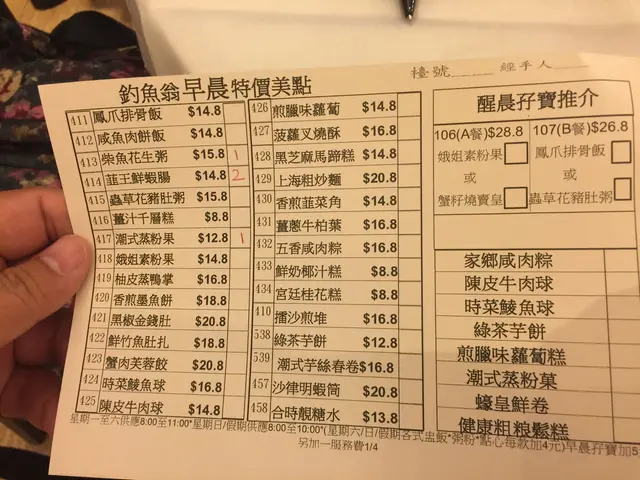 檯號____ 經手人____
釣魚翁早晨特價美點
411 鳳爪排骨飯 $14.8
412 咸魚肉餅飯 $14.8
413 柴魚花生粥 $15.8 1
414 韮王鮮蝦腸 $14.8 2
415 蟲草花豬肚粥 $15.8
416 薑汁千層糕 $8.8
417 潮式蒸粉果 $12.8 1
418 娥姐素粉果 $14.8
419 柚皮蒸鴨掌 $16.8
420 香煎墨魚餅 $18.8
421 黑椒金錢肚 $20.8
422 鮮竹魚肚扎 $18.8
423 蟹肉芙蓉餃 $20.8
424 時菜鯪魚球 $16.8
425 陳皮牛肉球 $14.8
426 煎臘味蘿蔔 $14.8
427 菠蘿叉燒酥 $16.8
428 黑芝麻馬蹄糕 $14.8
429 上海粗炒麵 $20.8
430 香煎韮菜角 $14.8
431 薑蔥牛柏葉 $16.8
432 五香咸肉粽 $16.8
433 鮮奶椰汁糕 $8.8
434 宮廷桂花糕 $8.8
410 擂沙煎堆 $16.8
538 綠茶芋餅 $12.8
539 潮式芋絲春卷 $16.8
457 沙律明蝦筒 $20.8
458 合時靚糖水 $13.8
醒晨孖寶推介
106(A餐)$28.8 107(B餐)$26.8
娥姐素粉果 鳳爪排骨飯
或 或
蟹籽燒賣皇 蟲草花豬肚粥
家鄉咸肉粽
陳皮牛肉球
時菜鯪魚球
綠茶芋餅
煎臘味蘿蔔糕
潮式蒸粉菓
蠔皇鮮卷
健康粗粮鬆糕
星期一至六供應8:00至11:00*星期日/假期供應8:00至10:00*(星期六/日/假期各式盅飯*粥粉*點心每款加4元)早晨孖寶加5
另加一服務費1/4